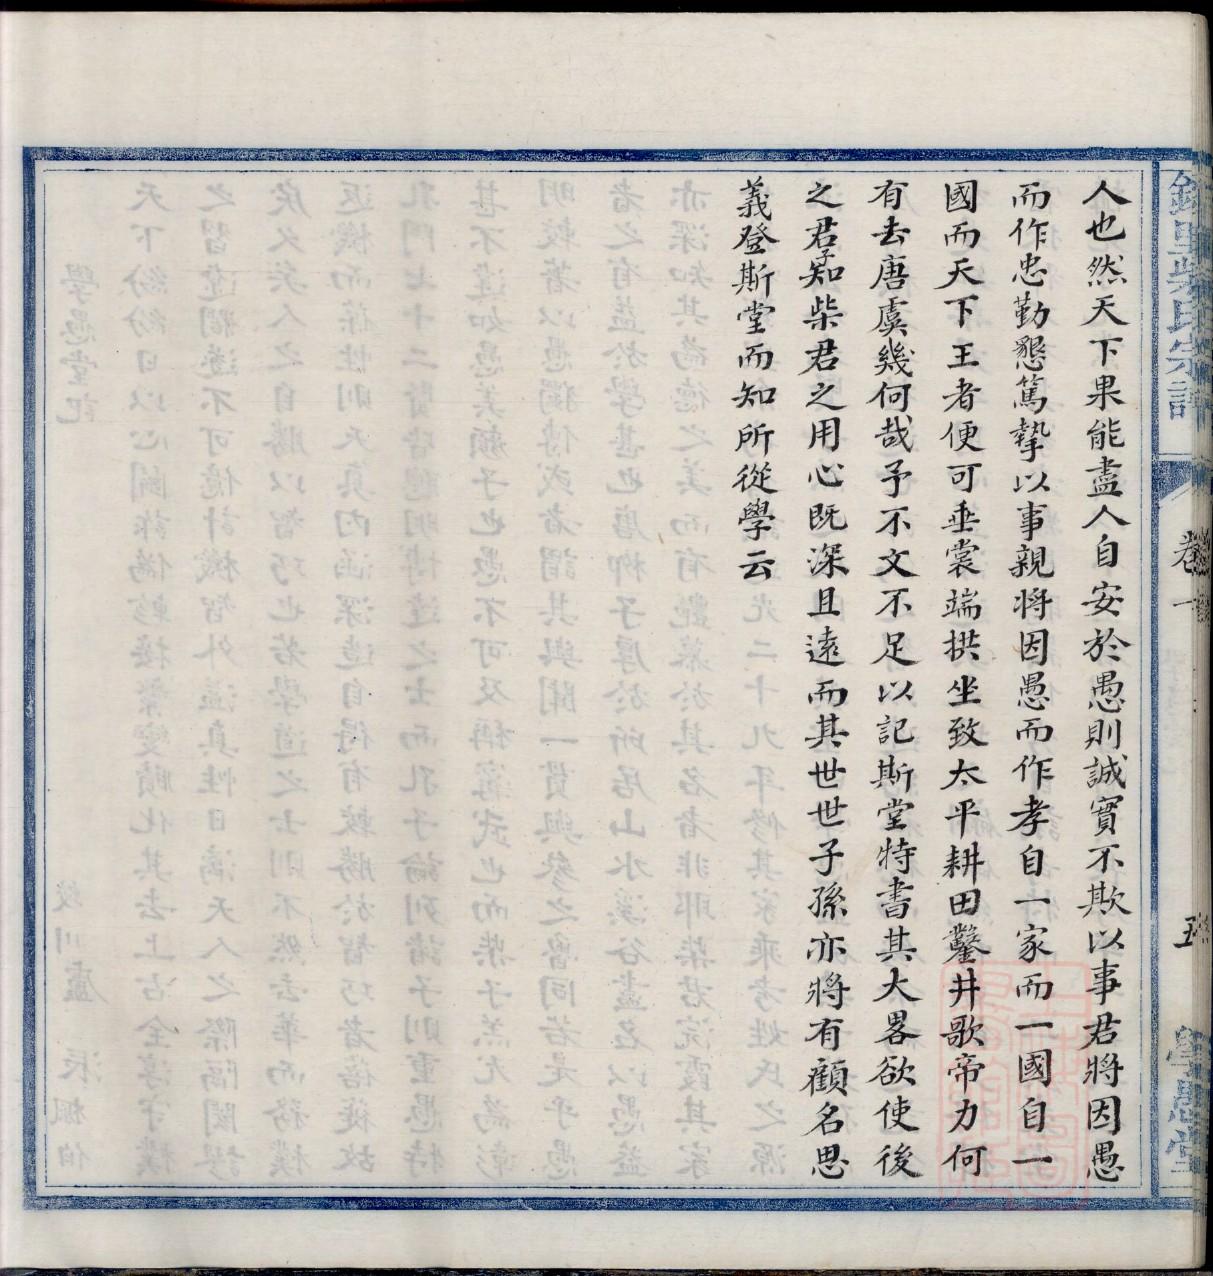 人也然天下果能盡人自安於愚則誠實不欺以事君將因愚
而作忠勤懇篤摯以事親將因愚而作孝自一家而一國自一
國而天下王者便可垂裳端拱坐致太平耕田鑿井歌帝力何
有去唐虞幾何哉予不文不足以記斯堂特書其大畧欲使後
之君子知柴君之用心既深且遠而其世世子孫亦將有顧名思
義登斯堂而知所從學云
卷一
五
學愚堂